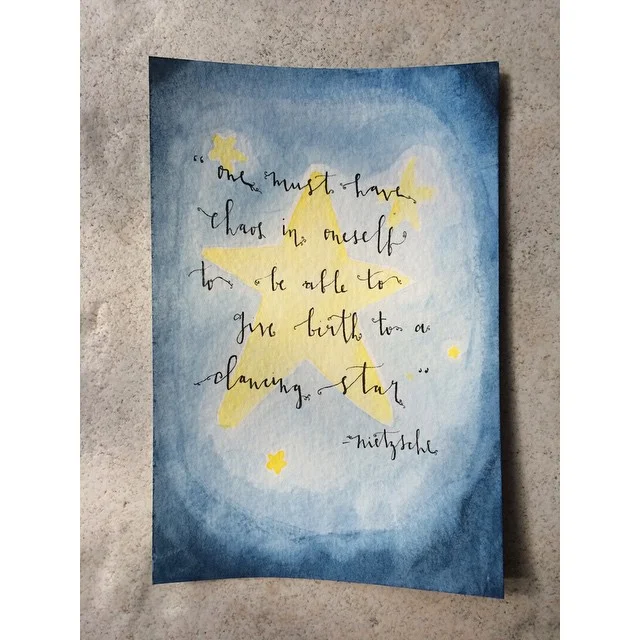 "one must have
chaos in oneself
to be able to
give birth to a
dancing star"
-nietzsche